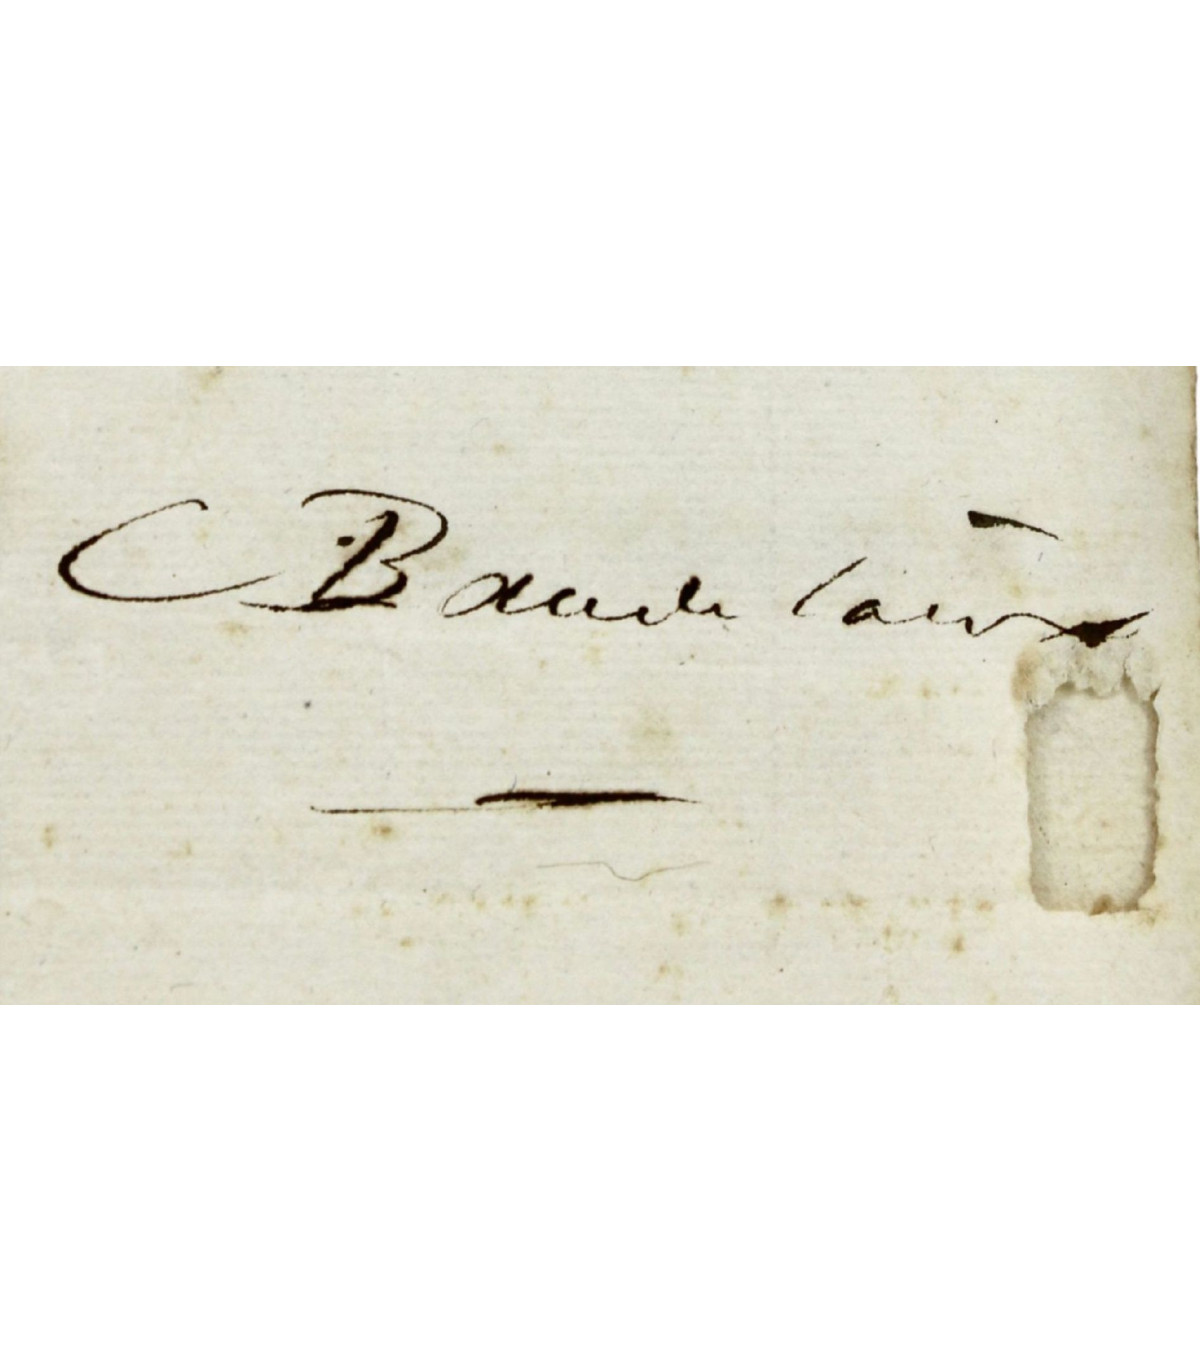 C Baudelaire